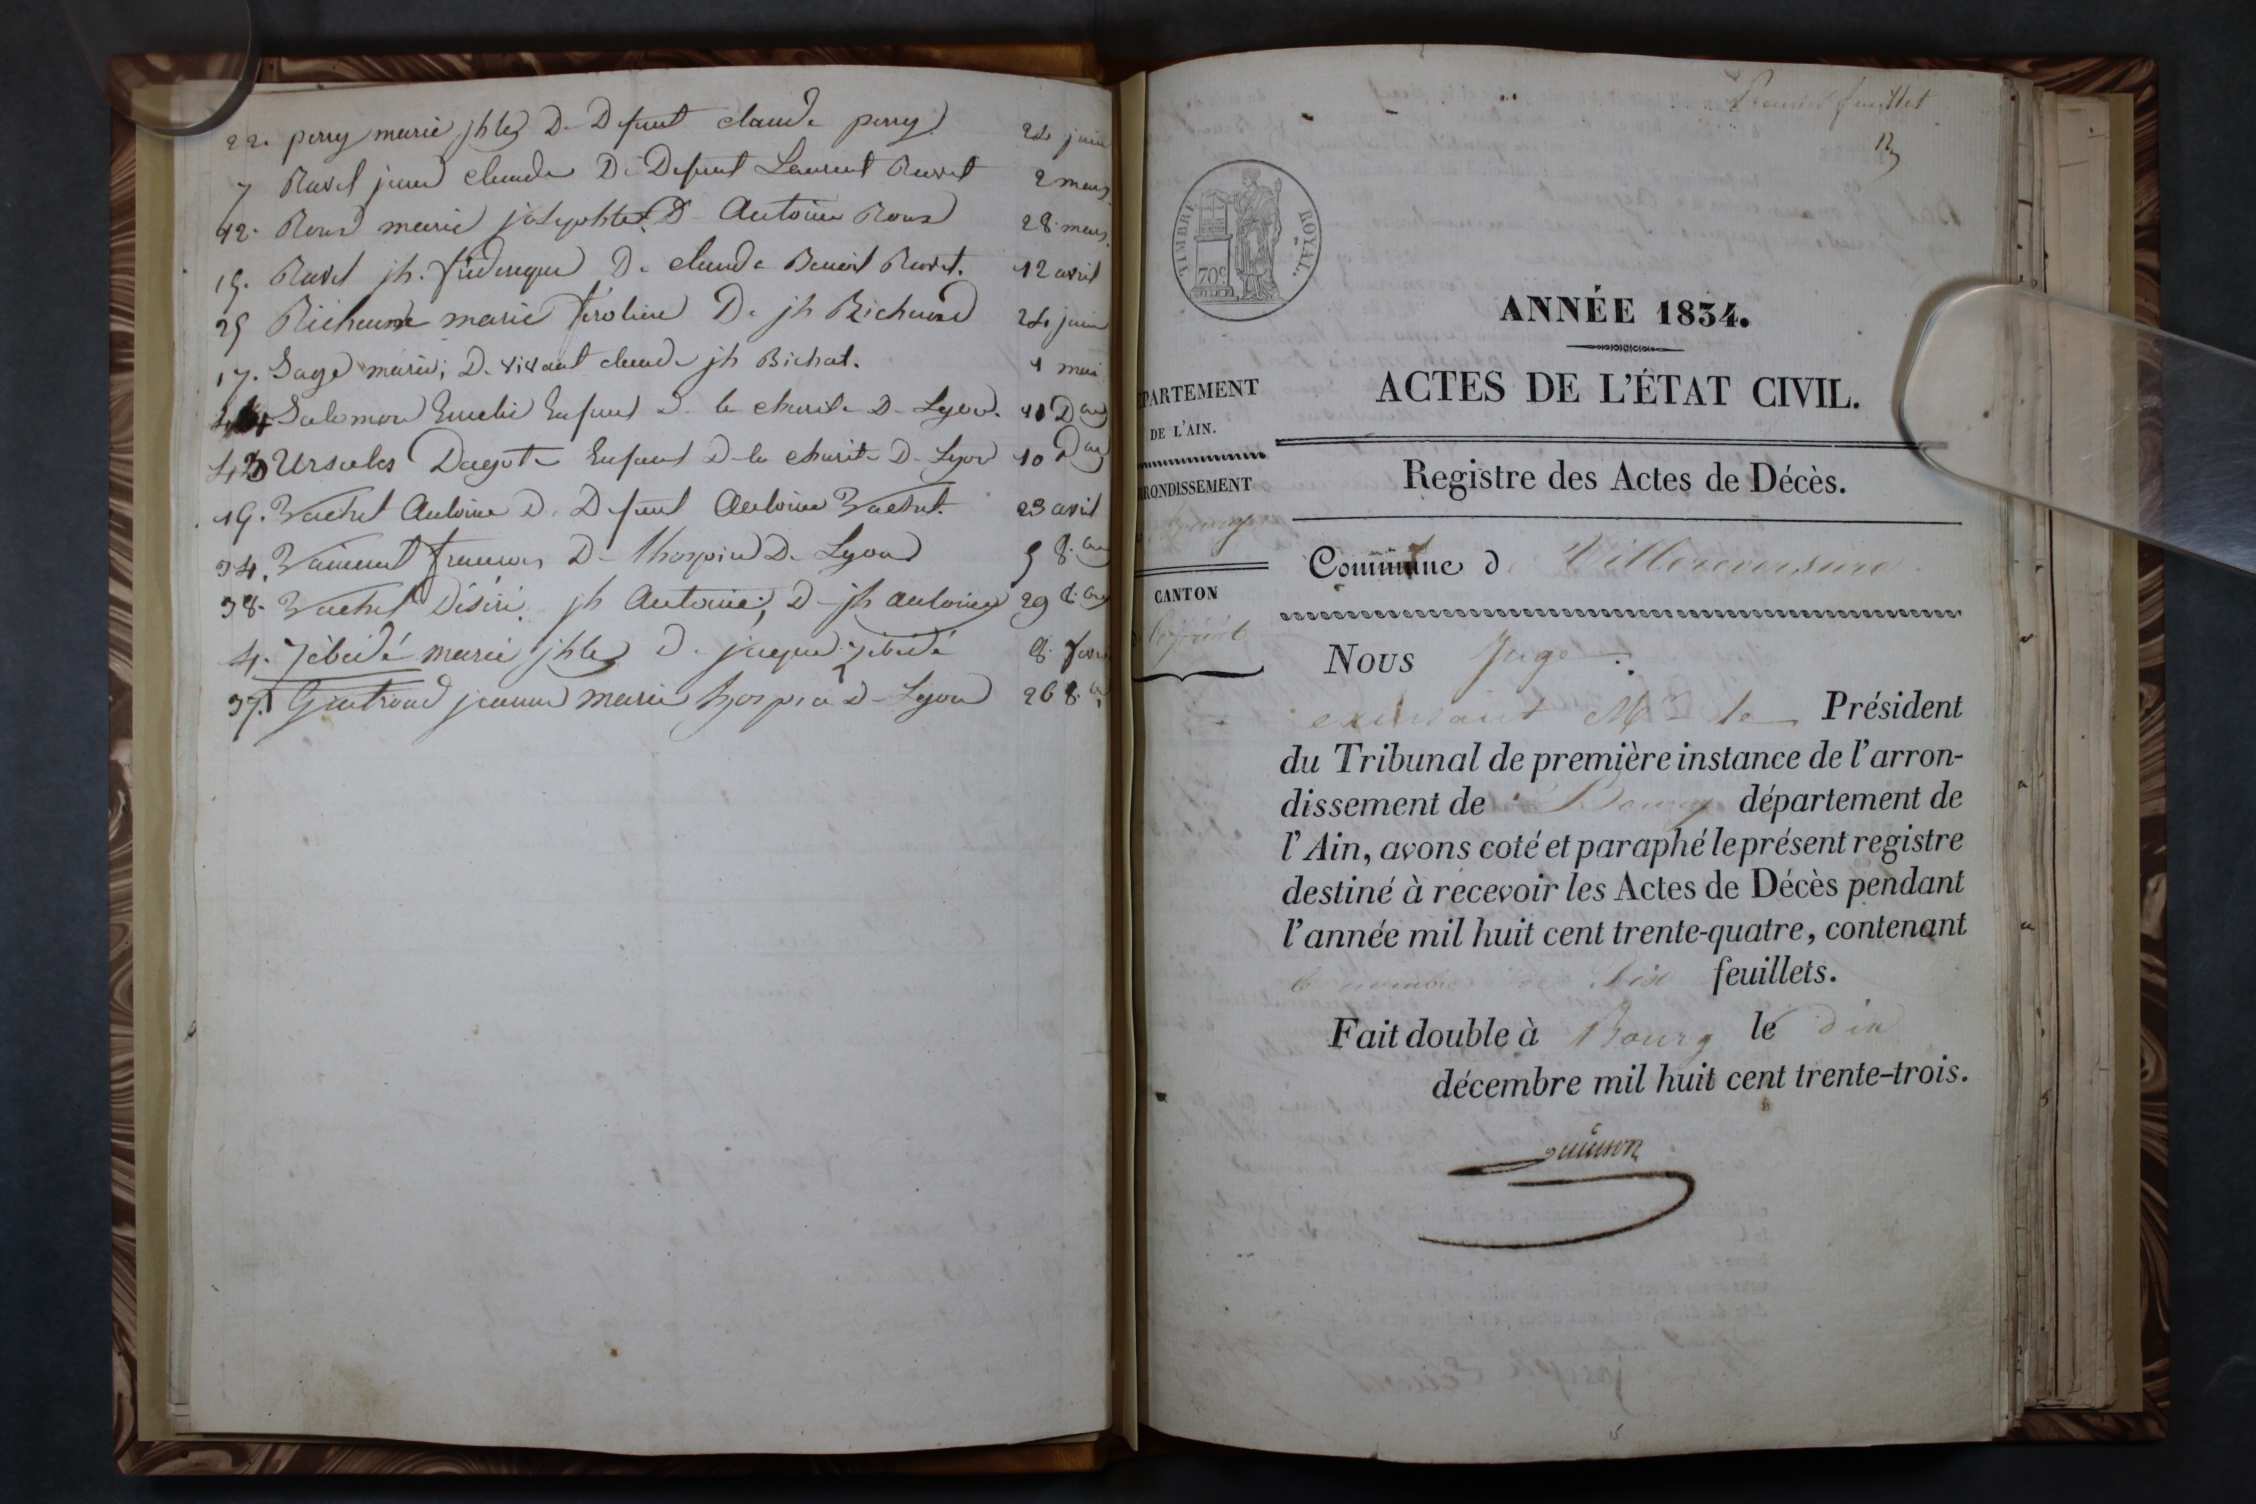 22. perry marie jhte D. Defunt claude perry 24 juin
7 Ravet jean claude D. Defunt Laurent Ravet 2 mars
12. Roux marie josephte D. Antoine Roux 28 mars
15. Ravet jh. fréderique D. claude Benoit Ravet. 12 avril
25 Richaume marie D. jh Richaume 24 juin
17. Sage marie, D. vivant claude jh Bichat. 1 mai
44 Salomon Emelie Enfant D. la charité D. Lyon. 10 D
43 Ursules Dagote Enfant D. la charité D. Lyon 10 D
19. Vachet Antoine D. Defunt Antoine Vachet. 23 avril
34. Vaiment francois D. Lyon 5 8.bre
38. Vachet Désiré jh Antoine, D. jh antoine 29 8.bre
4. marie jhte D. jacque 8
37. jeanne marie D. Lyon 26 8.bre
Premier feuillet
TIMBRE ROYAL.
70c
ANNÉE 1834.
ACTES DE L'ÉTAT CIVIL.
PARTEMENT
DE L'AIN.
RONDISSEMENT
Bourg
CANTON
Registre des Actes de Décès.
Commune de Villereversure
Nous Juge
exerçant Mr le Président
du Tribunal de première instance de l'arron-
dissement de Bourg département de
l'Ain, avons coté et paraphé le présent registre
destiné à recevoir les Actes de Décès pendant
l'année mil huit cent trente-quatre, contenant
le nombre de dix feuillets.
Fait double à Bourg le dix
décembre mil huit cent trente-trois.